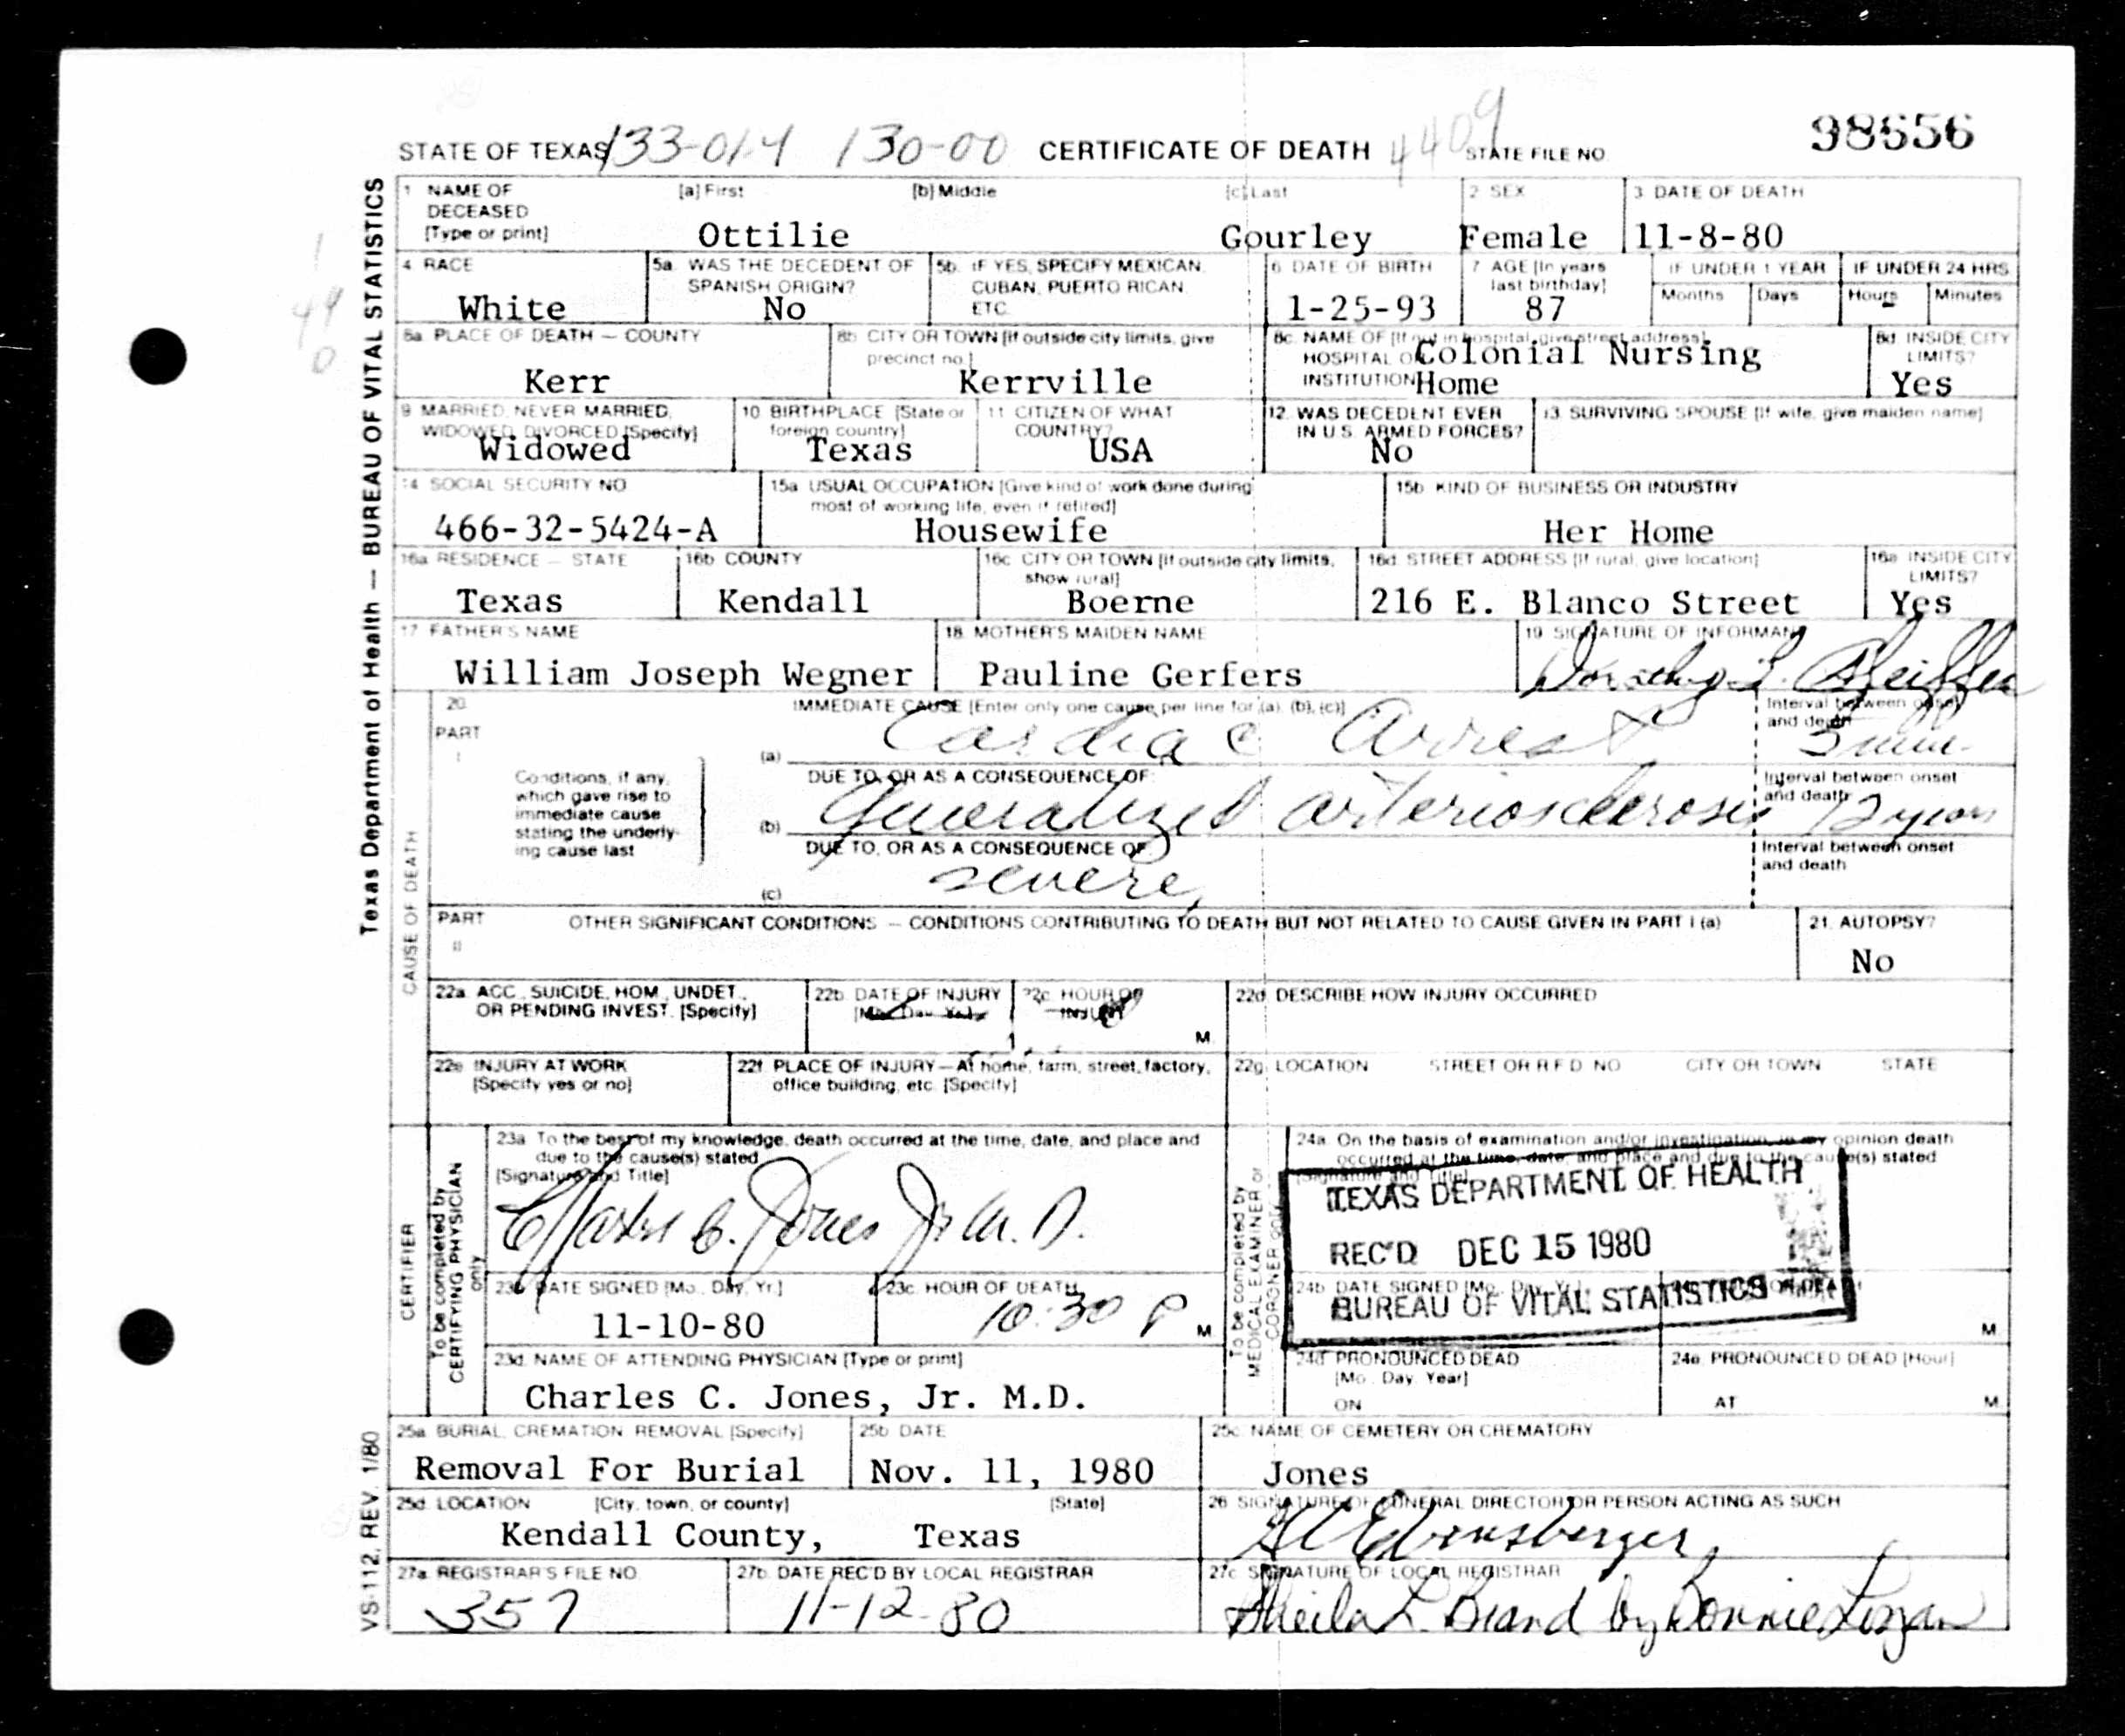 STATE OF TEXAS 133-014 130-00 CERTIFICATE OF DEATH 4409 STATE FILE NO. 98656
Texas Department of Health — BUREAU OF VITAL STATISTICS
1 NAME OF DECEASED [Type or print] [a] First [b] Middle [c] Last 2 SEX 3 DATE OF DEATH
Ottilie Gourley Female 11-8-80
4 RACE 5a. WAS THE DECEDENT OF SPANISH ORIGIN? 5b. IF YES, SPECIFY MEXICAN, CUBAN, PUERTO RICAN, ETC. 6 DATE OF BIRTH 7 AGE [In years last birthday] IF UNDER 1 YEAR Months Days IF UNDER 24 HRS. Hours Minutes
White No 1-25-93 87
8a. PLACE OF DEATH — COUNTY 8b. CITY OR TOWN [If outside city limits, give precinct no.] 8c. NAME OF [If not in hospital, give street address] HOSPITAL OR INSTITUTION 8d. INSIDE CITY LIMITS?
Kerr Kerrville Colonial Nursing Home Yes
9 MARRIED, NEVER MARRIED, WIDOWED, DIVORCED [Specify] 10 BIRTHPLACE [State or foreign country] 11 CITIZEN OF WHAT COUNTRY? 12. WAS DECEDENT EVER IN U.S. ARMED FORCES? 13. SURVIVING SPOUSE [If wife, give maiden name]
Widowed Texas USA No
14 SOCIAL SECURITY NO. 15a. USUAL OCCUPATION [Give kind of work done during most of working life, even if retired] 15b. KIND OF BUSINESS OR INDUSTRY
466-32-5424-A Housewife Her Home
16a. RESIDENCE — STATE 16b. COUNTY 16c. CITY OR TOWN [If outside city limits, show rural] 16d. STREET ADDRESS [If rural, give location] 16e. INSIDE CITY LIMITS?
Texas Kendall Boerne 216 E. Blanco Street Yes
17 FATHER'S NAME 18. MOTHER'S MAIDEN NAME 19. SIGNATURE OF INFORMANT
William Joseph Wegner Pauline Gerfers Dorothy L. Pfeiffer
CAUSE OF DEATH
20. PART I IMMEDIATE CAUSE [Enter only one cause per line for (a), (b), (c)] Interval between onset and death
(a) Cardiac Arrest 5 min.
Conditions, if any, which gave rise to immediate cause stating the underlying cause last
DUE TO, OR AS A CONSEQUENCE OF: Interval between onset and death
(b) Generalized arteriosclerosis 12 years
DUE TO, OR AS A CONSEQUENCE OF: Interval between onset and death
(c) severe
PART II OTHER SIGNIFICANT CONDITIONS — CONDITIONS CONTRIBUTING TO DEATH BUT NOT RELATED TO CAUSE GIVEN IN PART I (a) 21. AUTOPSY?
No
22a. ACC., SUICIDE, HOM., UNDET., OR PENDING INVEST. [Specify] 22b. DATE OF INJURY [Mo., Day, Yr.] 22c. HOUR OF INJURY M. 22d. DESCRIBE HOW INJURY OCCURRED
22e. INJURY AT WORK [Specify yes or no] 22f. PLACE OF INJURY—At home, farm, street, factory, office building, etc. [Specify] 22g. LOCATION STREET OR R.F.D. NO. CITY OR TOWN STATE
CERTIFIER
To be completed by CERTIFYING PHYSICIAN only
23a. To the best of my knowledge, death occurred at the time, date, and place and due to the cause(s) stated
[Signature and Title]
Charles C. Jones Jr M.D.
23b. DATE SIGNED [Mo., Day, Yr.] 23c. HOUR OF DEATH
11-10-80 10:30 P M
23d. NAME OF ATTENDING PHYSICIAN [Type or print]
Charles C. Jones, Jr. M.D.
To be completed by MEDICAL EXAMINER or CORONER only
24a. On the basis of examination and/or investigation, in my opinion death occurred at the time, date, and place and due to the cause(s) stated
[Signature and Title]
TEXAS DEPARTMENT OF HEALTH
REC'D DEC 15 1980
BUREAU OF VITAL STATISTICS
24b. DATE SIGNED [Mo., Day, Yr.] OF DEATH M.
24d. PRONOUNCED DEAD [Mo., Day, Year] ON 24e. PRONOUNCED DEAD [Hour] AT M.
25a. BURIAL, CREMATION, REMOVAL [Specify] 25b. DATE 25c. NAME OF CEMETERY OR CREMATORY
Removal For Burial Nov. 11, 1980 Jones
25d. LOCATION [City, town, or county] [State] 26. SIGNATURE OF FUNERAL DIRECTOR OR PERSON ACTING AS SUCH
Kendall County, Texas Ebensberger
27a. REGISTRAR'S FILE NO. 27b. DATE REC'D BY LOCAL REGISTRAR 27c. SIGNATURE OF LOCAL REGISTRAR
357 11-12-80 Sheila L. Brand by Bonnie Logan
VS-112, REV. 1/80